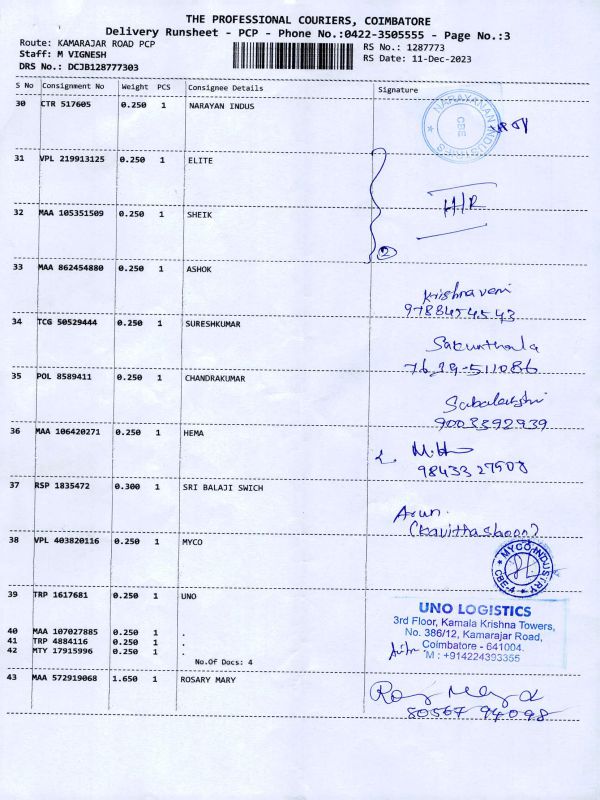 THE PROFESSIONAL COURIERS, COIMBATORE
Delivery Runsheet - PCP - Phone No.:0422-3505555 - Page No.:3
Route: KAMARAJAR ROAD PCP
RS No.: 1287773
Staff: M VIGNESH
RS Date: 11-Dec-2023
DRS No.: DCJB128777303
S No Consignment No Weight PCS Consignee Details Signature
30 CTR 517605 0.250 1 NARAYAN INDUS
NARAYANAN INDUSTRIES
CBE
31 VPL 219913125 0.250 1 ELITE
H/R
32 MAA 105351509 0.250 1 SHEIK
2
33 MAA 862454880 0.250 1 ASHOK
Krishnaveni
9788454543
34 TCG 50529444 0.250 1 SURESHKUMAR
Sakunthala
76,19-511086
35 POL 8589411 0.250 1 CHANDRAKUMAR
9003392939
36 MAA 106420271 0.250 1 HEMA
9843327508
37 RSP 1835472 0.300 1 SRI BALAJI SWICH
Arun.
(Kavitha shoon)
38 VPL 403820116 0.250 1 MYCO
MYCO INDUSTRY
CBE-4
39 TRP 1617681 0.250 1 UNO
UNO LOGISTICS
3rd Floor, Kamala Krishna Towers,
No. 386/12, Kamarajar Road,
Coimbatore - 641004.
M : +914224393355
40 MAA 107027885 0.250 1 .
41 TRP 4884116 0.250 1 .
42 MTY 17915996 0.250 1 .
No.Of Docs: 4
43 MAA 572919068 1.650 1 ROSARY MARY
80567 94098